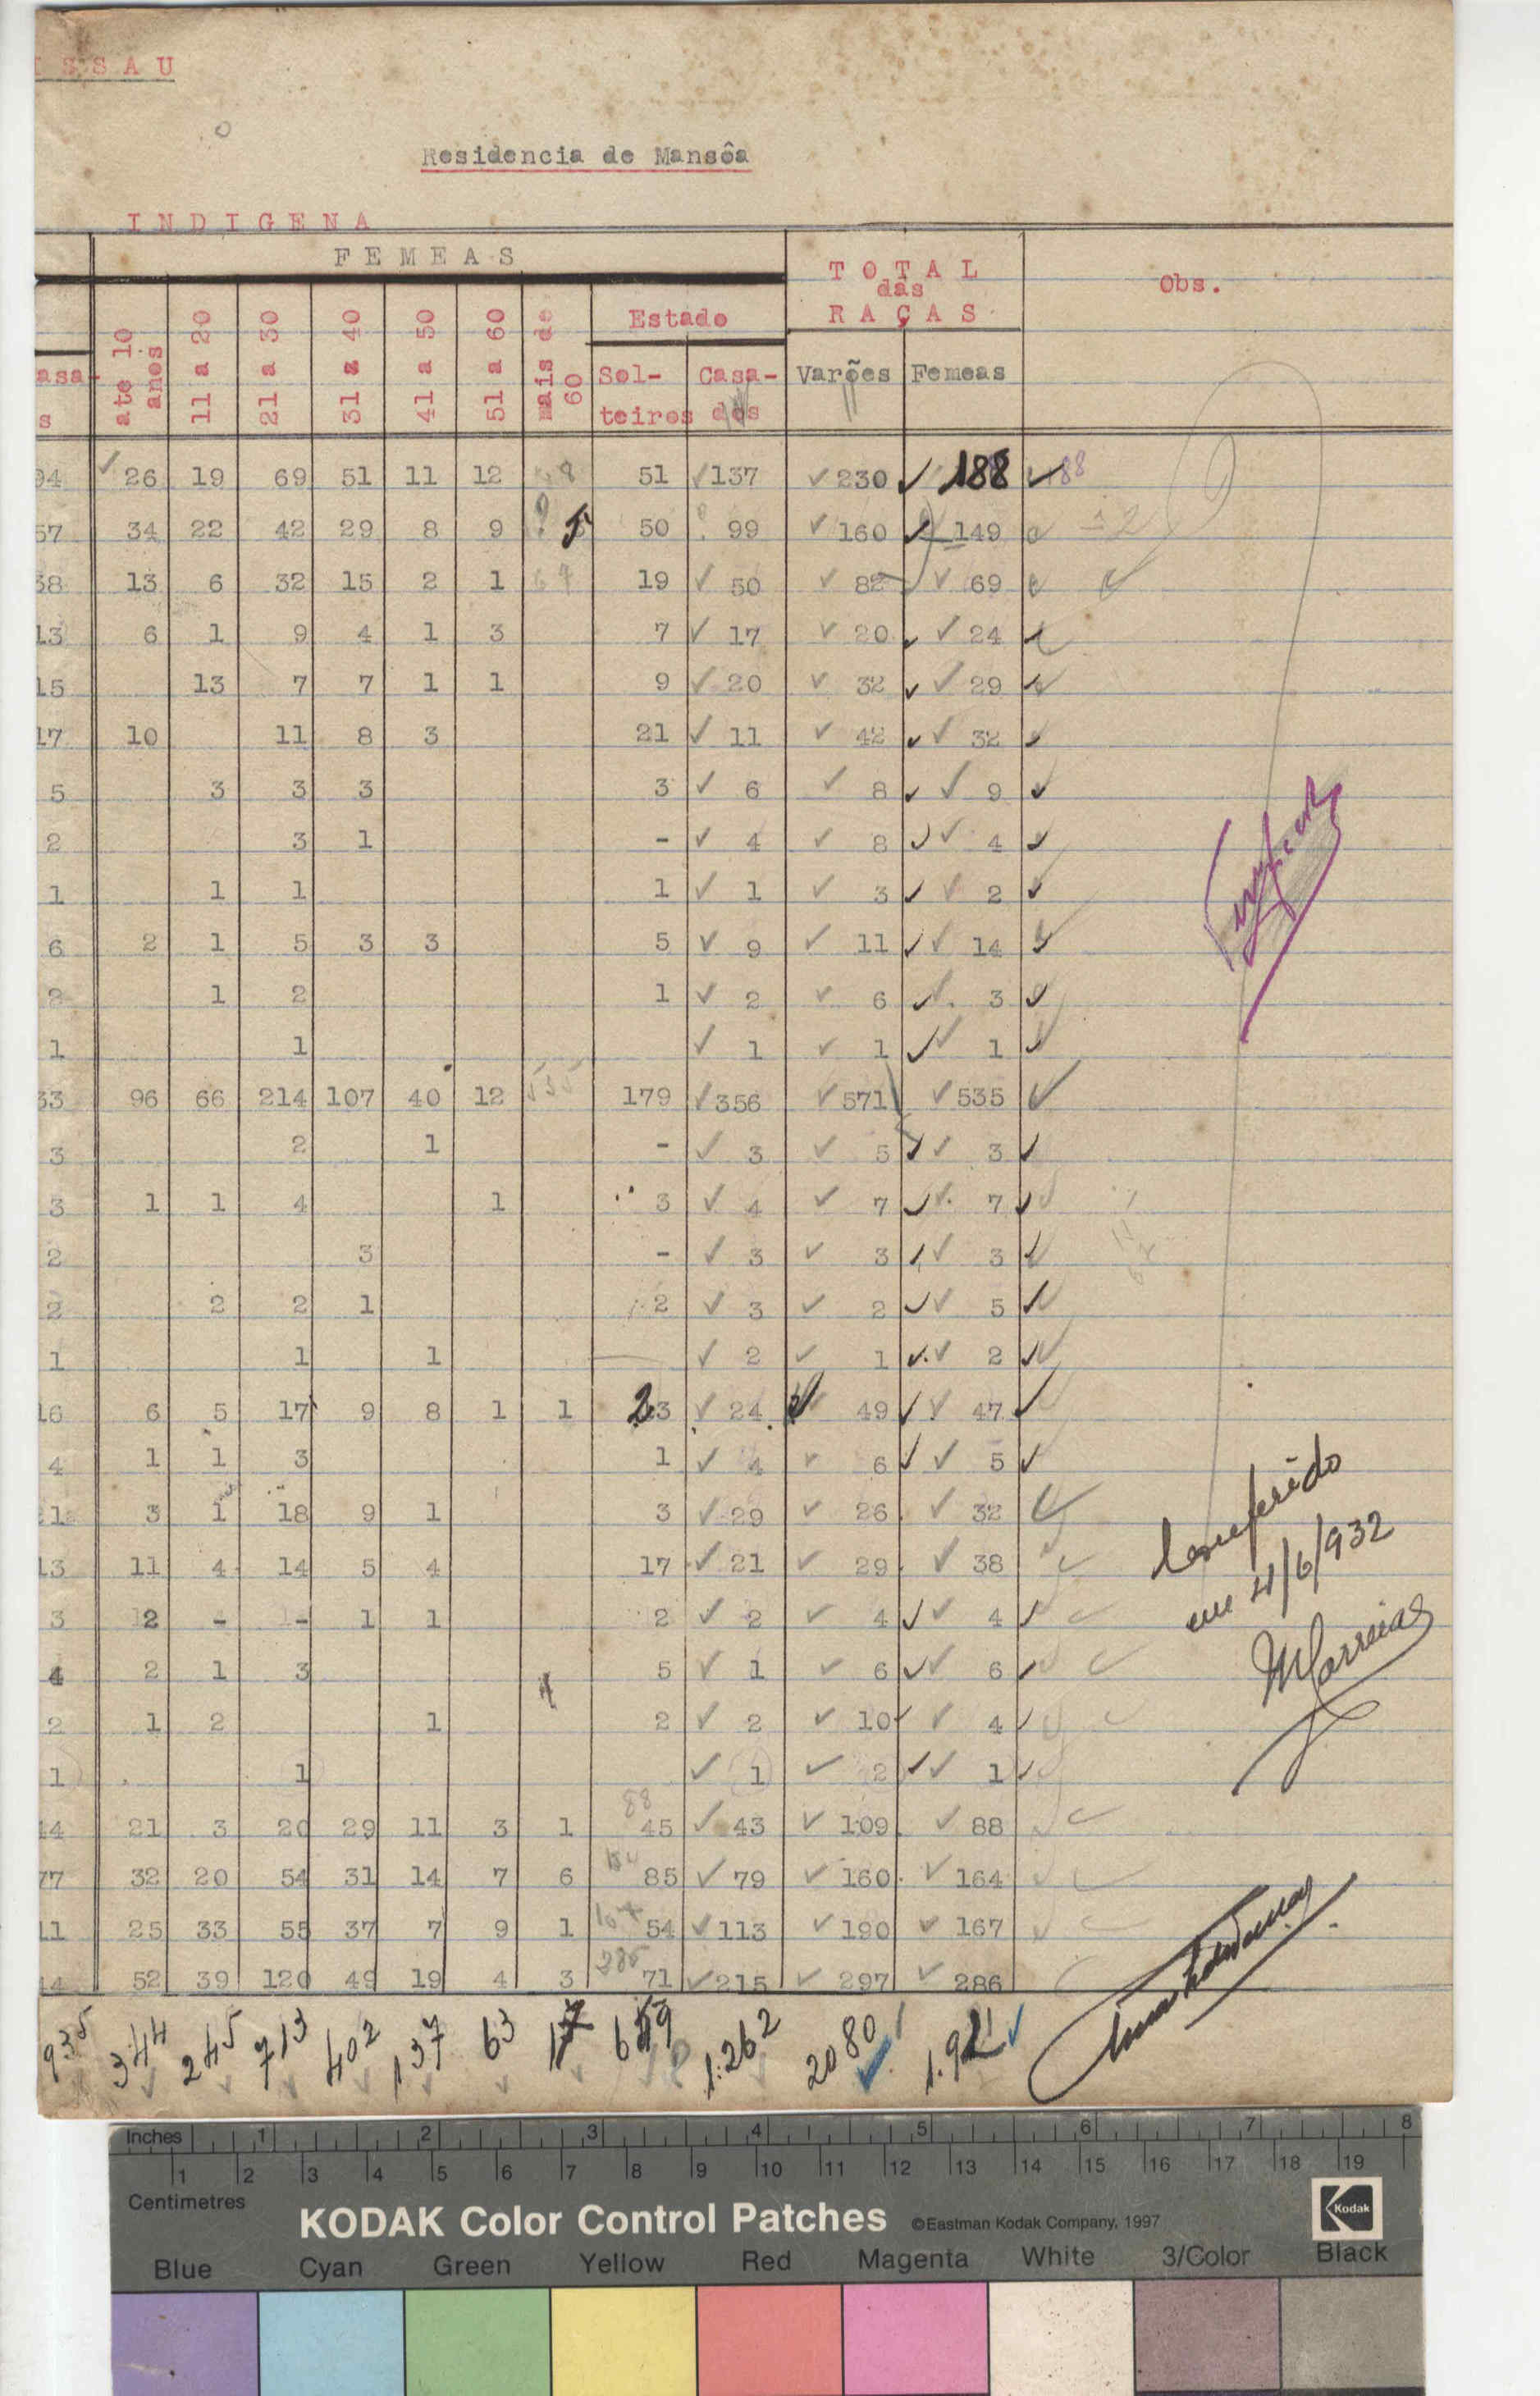 ISSAU
Residencia de Mansôa
INDIGENA
FEMEAS
TOTAL
das
RAÇAS
Obs.
asa-
s
ate 10 anos
11 a 20
21 a 30
31 a 40
41 a 50
51 a 60
mais de 60
Estado
Sol-
teiros
Casa-
dos
Varões
Femeas
94 26 19 69 51 11 12 51 137 230 188 88
57 34 22 42 29 8 9 5 50 99 160 149
38 13 6 32 15 2 1 19 50 82 69
13 6 1 9 4 1 3 7 17 20 24
15 13 7 7 1 1 9 20 32 29
17 10 11 8 3 21 11 42 32
5 3 3 3 3 6 8 9
2 3 1 - 4 8 4
1 1 1 1 1 3 2
6 2 1 5 3 3 5 9 11 14
2 1 2 1 2 6 3
1 1 1 1 1
33 96 66 214 107 40 12 535 179 356 571 535
3 2 1 - 3 5 3
3 1 1 4 1 3 4 7 7
2 3 - 3 3 3
2 2 2 1 2 3 2 5
1 1 1 2 1 2
16 6 5 17 9 8 1 1 23 24 49 47
4 1 1 3 1 4 6 5
21 3 1 18 9 1 3 29 26 32
13 11 4 14 5 4 17 21 29 38
3 2 - - 1 1 2 2 4 4
4 2 1 3 5 1 6 6
2 1 2 1 2 2 10 4
1 1 1 2 1
88
14 21 3 20 29 11 3 1 45 43 109 88
77 32 20 54 31 14 7 6 85 79 160 164
11 25 33 55 37 7 9 1 54 113 190 167
14 52 39 120 49 19 4 3 71 215 297 286
935 344 245 713 402 137 63 17 659 1.262 2080 1.921
Conferido
em 4/6/932
MCorreia
Inches 1 2 3 4 5 6 7 8
1 2 3 4 5 6 7 8 9 10 11 12 13 14 15 16 17 18 19
Centimetres
KODAK Color Control Patches ©Eastman Kodak Company, 1997 Kodak
Blue Cyan Green Yellow Red Magenta White 3/Color Black